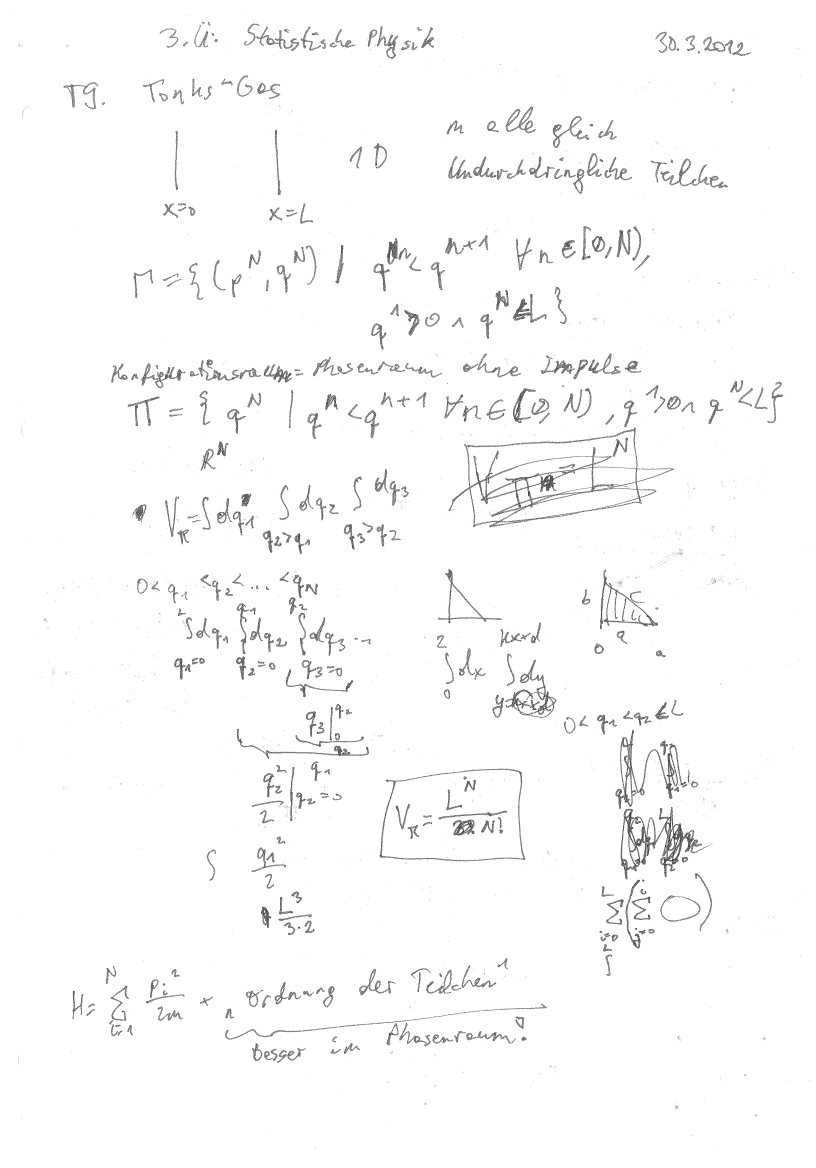 3.Ü: Statistische Physik 30.3.2012
T9. Tonks-Gas
1D m alle gleich
Undurchdringliche Teilchen
x=0 x=L
Γ={(p^N, q^N) | q^n < q^{n+1} ∀n∈[0,N),
q^1>0 ∧ q^N≤L}
Konfigurationsraum = Phasenraum ohne Impulse
Π = { q^N | q^n < q^{n+1} ∀n∈[0,N), q^1>0 ∧ q^N<L}
ℝ^N
V_π = ∫dq_1 ∫_{q_2>q_1} dq_2 ∫_{q_3>q_2} dq_3
0<q_1<q_2<...<q_N
∫_{q_1=0}^{L} dq_1 ∫_{q_2=0}^{q_1} dq_2 ∫_{q_3=0}^{q_2} dq_3 ...
b c
0 a a
∫_0 dx ∫ dy
0<q_1<q_2≤L
q_3 |_0^{q_2}
q_2
q_2^2/2 |_{q_2=0}^{q_1}
V_π = L^N / N!
∫ q_1^2/2
L^3/3·2
∑_{i=0}^{L} (∑_{j=0}^{i} )
∫
H= ∑_{i=1}^{N} p_i^2/2m + "Ordnung der Teilchen"
Besser im Phasenraum!